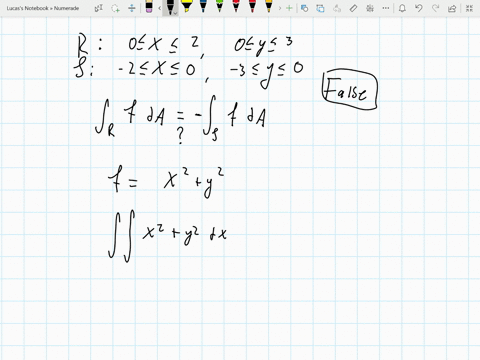 Lucas's Notebook » Numerade
R: 0≤x≤2, 0≤y≤3
S: -2≤x≤0, -3≤y≤0
False
∫_R f dA = -∫_S f dA
?
f = x² + y²
∫∫ x² + y² dx